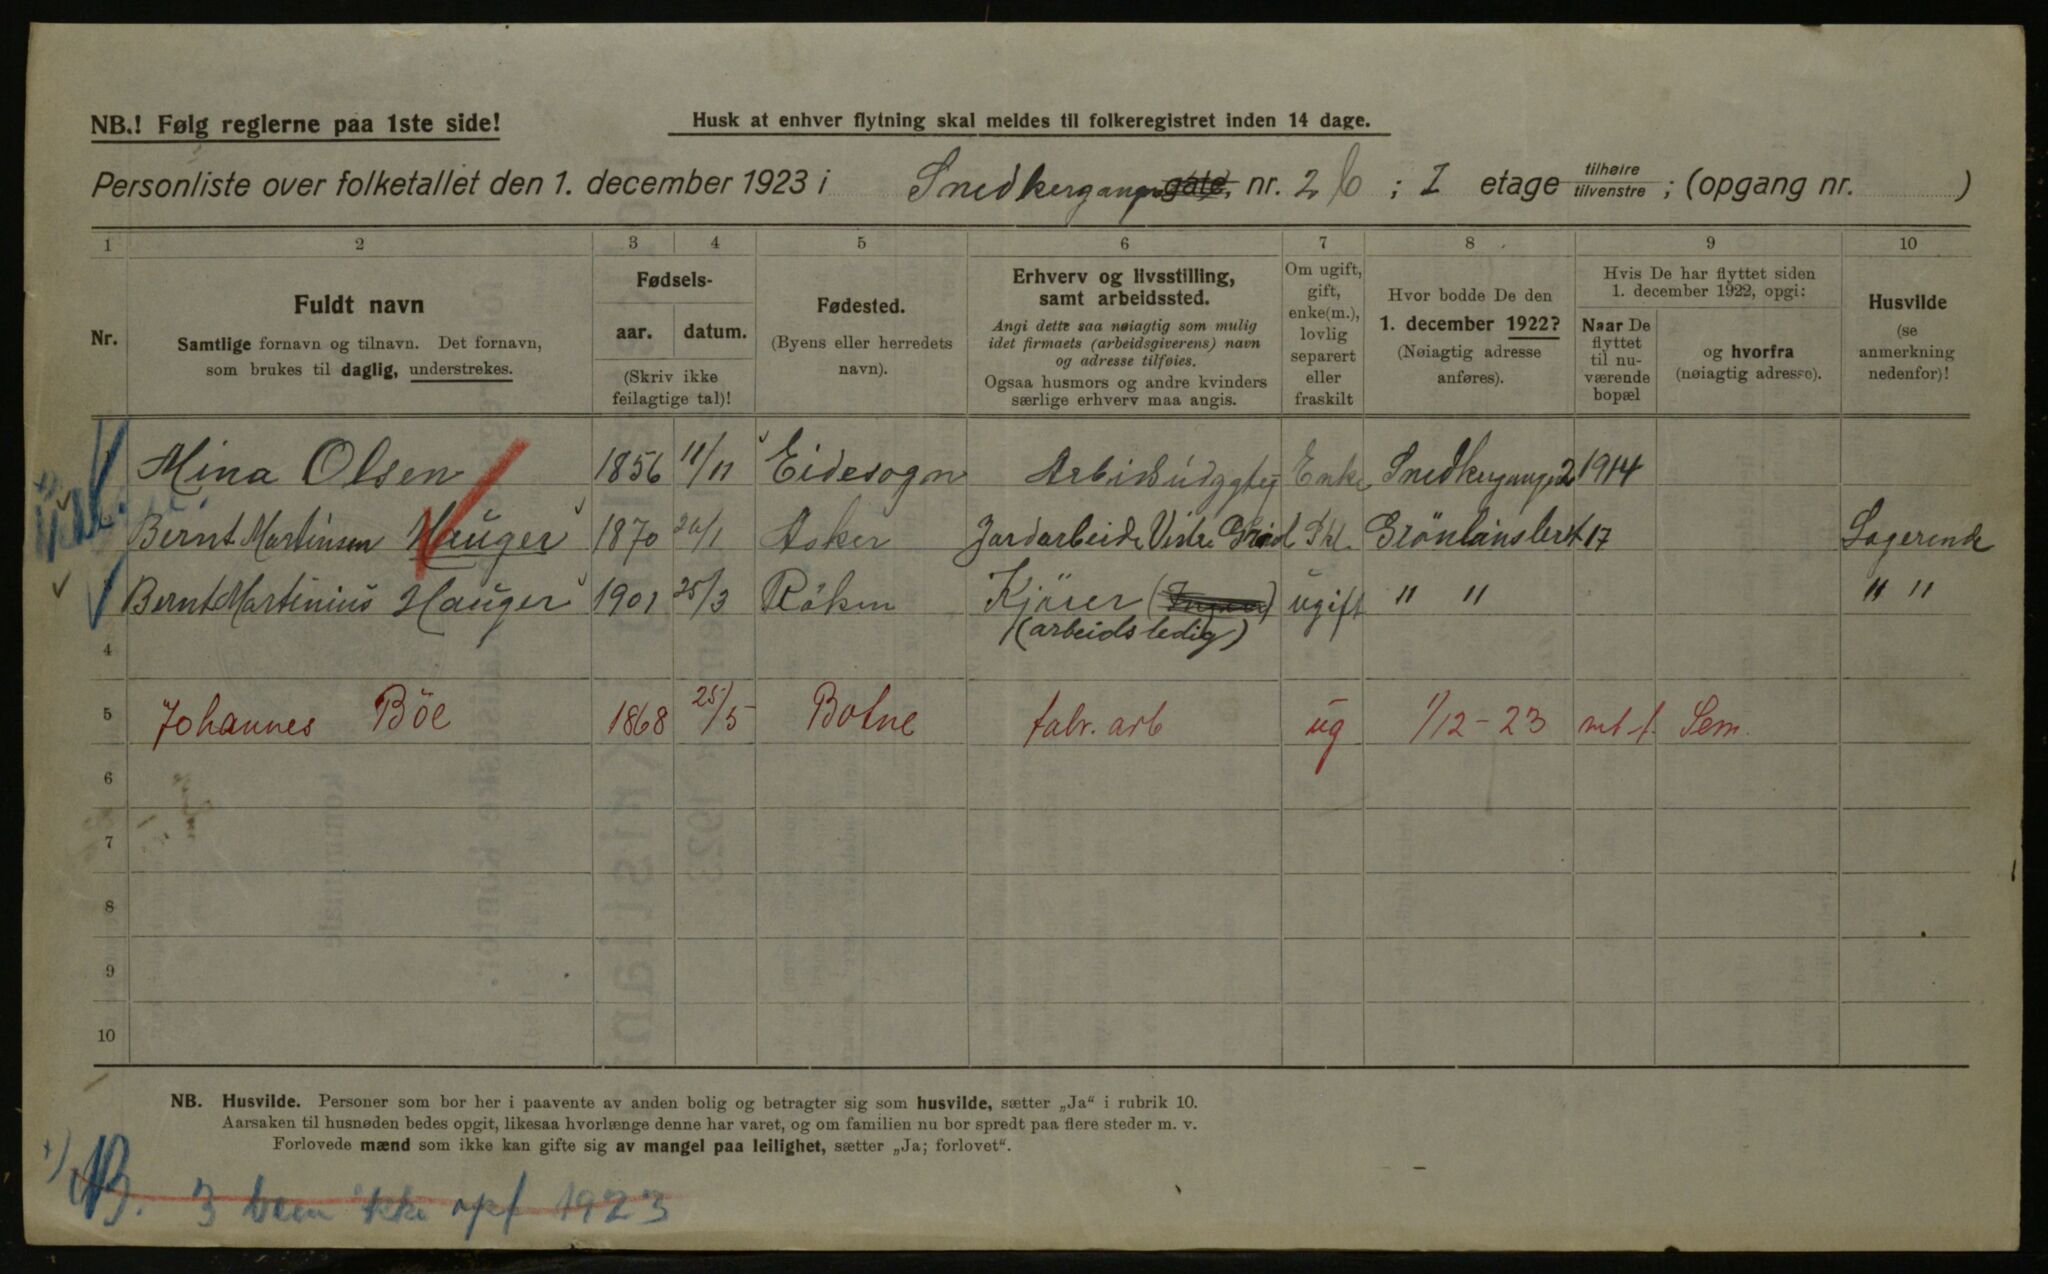 NB.! Følg reglerne paa 1ste side!
Husk at enhver flytning skal meldes til folkeregistret inden 14 dage.
Personliste over folketallet den 1. december 1923 i Snedkergangen gate, nr. 2 b ; I etage tilhøire tilvenstre ; (opgang nr. )
1 2 3 4 5 6 7 8 9 10
Nr.
Fuldt navn
Samtlige fornavn og tilnavn. Det fornavn,
som brukes til daglig, understrekes.
Fødsels-
aar. datum.
(Skriv ikke
feilagtige tal)!
Fødested.
(Byens eller herredets
navn).
Erhverv og livsstilling,
samt arbeidssted.
Angi dette saa nøiagtig som mulig
idet firmaets (arbeidsgiverens) navn
og adresse tilføies.
Ogsaa husmors og andre kvinders
særlige erhverv maa angis.
Om ugift,
gift,
enke(m.),
lovlig
separert
eller
fraskilt
Hvor bodde De den
1. december 1922?
(Nøiagtig adresse
anføres).
Hvis De har flyttet siden
1. december 1922, opgi:
Naar De
flyttet
til nu-
værende
bopæl
og hvorfra
(nøiagtig adresse).
Husvilde
(se
anmerkning
nedenfor)!
Mina Olsen 1856 11/11 Eidesogn Enke Snedkergangen 2 1914
Bernt Martinsen Hauger 1870 20/1 Asker Jordarbeide Grönlansleret 17 Logerende
Bernt Martinius Hauger 1901 25/3 Röken Kjörer ugift " " " "
(arbeidsledig)
4
5 Johannes Böe 1868 25/5 Botne fabr. arb ug 1/12 - 23 Sem.
6
7
8
9
10
NB. Husvilde. Personer som bor her i paavente av anden bolig og betragter sig som husvilde, sætter „Ja“ i rubrik 10.
Aarsaken til husnøden bedes opgit, likesaa hvorlænge denne har varet, og om familien nu bor spredt paa flere steder m. v.
Forlovede mænd som ikke kan gifte sig av mangel paa leilighet, sætter „Ja; forlovet“.
NB. 3 ikke opf 1923